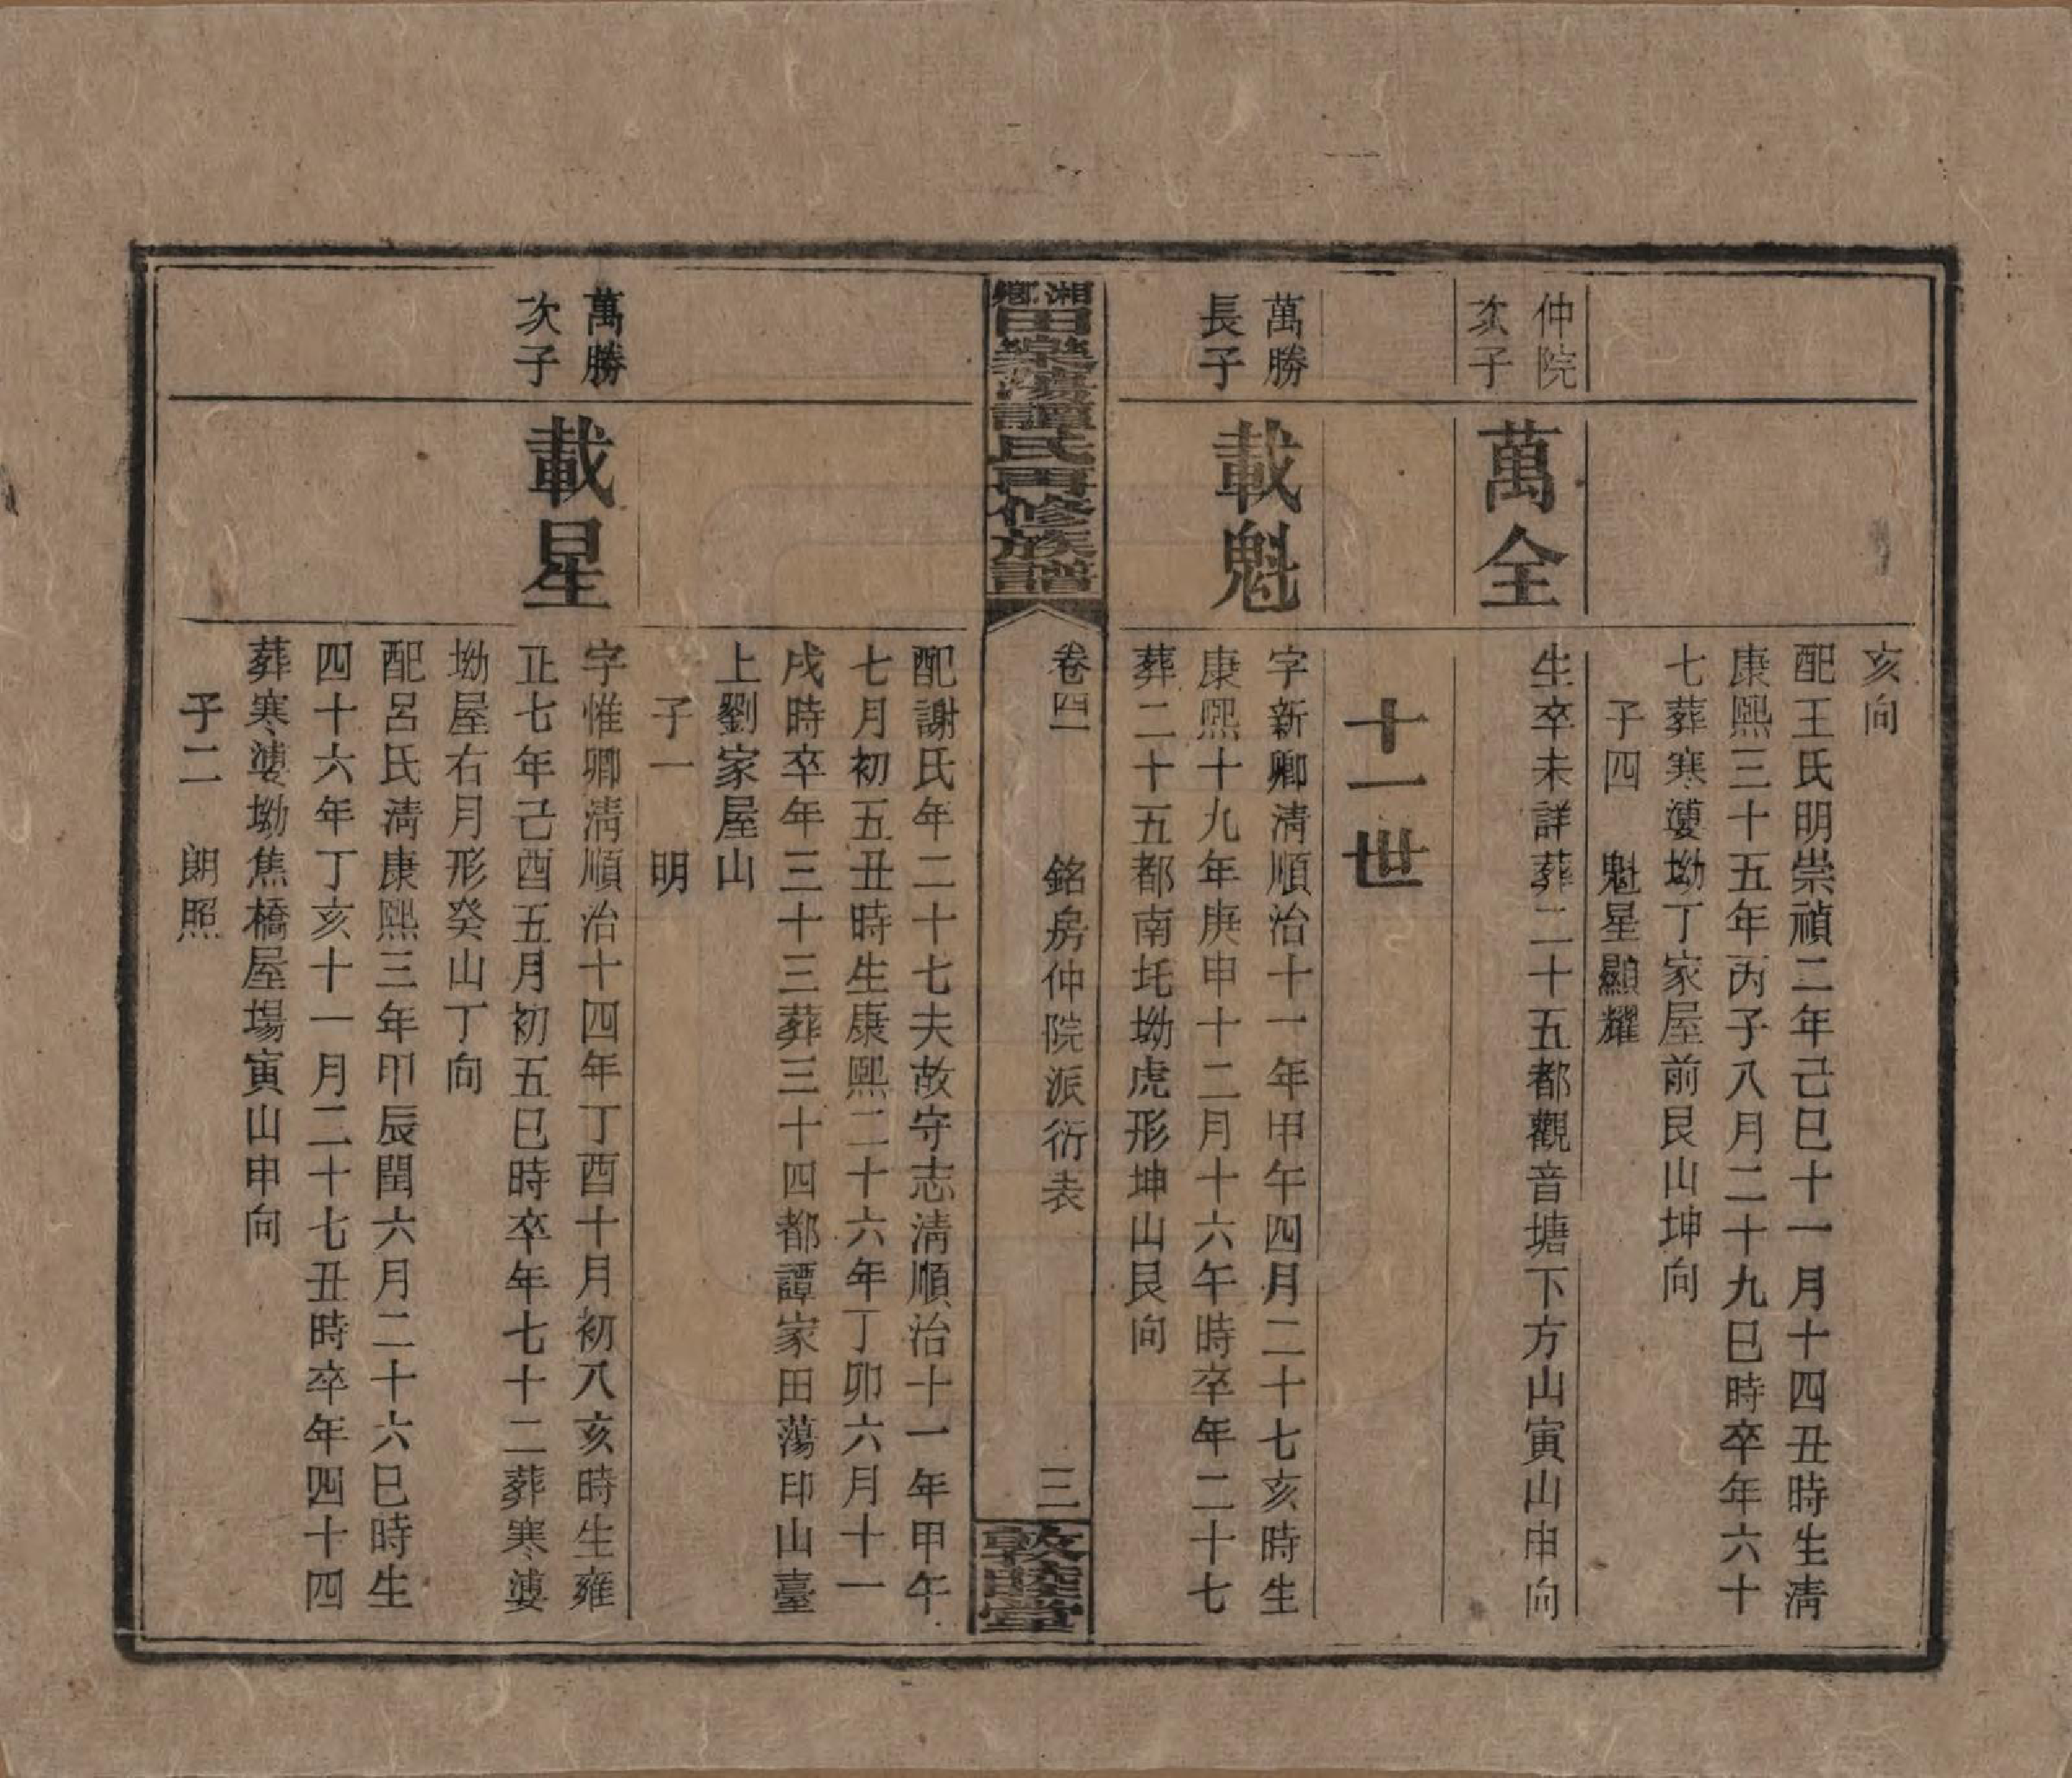 亥向
配王氏明崇禎二年己巳十一月十四丑時生清
康熙三十五年丙子八月二十九巳時卒年六十
七葬寒婆坳丁家屋前艮山坤向
子四　魁星顯耀
仲院次子
萬全
生卒未詳葬二十五都觀音塘下方山寅山申向
十一世
萬勝長子
載魁
字新卿清順治十一年甲午四月二十七亥時生
康熙十九年庚申十二月十六午時卒年二十七
葬二十五都南圫坳虎形坤山艮向
湘鄉田樂蕩譚氏再修族譜
卷四　銘房仲院派衍表　三
敦睦堂
配謝氏年二十七夫故守志清順治十一年甲午
七月初五丑時生康熙二十六年丁卯六月十一
戌時卒年三十三葬三十四都譚家田蕩印山臺
上劉家屋山
子一　明
萬勝次子
載星
字惟卿清順治十四年丁酉十月初八亥時生雍
正七年己酉五月初五巳時卒年七十二葬寒婆
坳屋右月形癸山丁向
配呂氏清康熙三年甲辰閏六月二十六巳時生
四十六年丁亥十一月二十七丑時卒年四十四
葬寒婆坳焦橋屋場寅山申向
子二　朗照